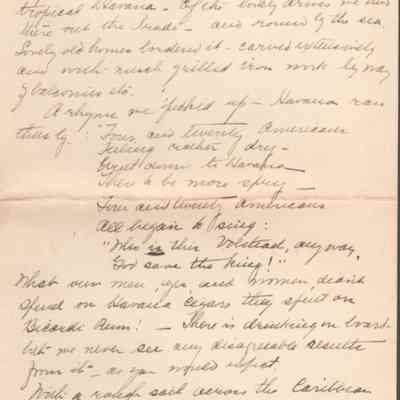 tropical Havana - Of the lovely drives we had
here out the Prado - and round by the sea.
Lovely old homes bordered it - carved extensively
and with much grilled iron work by way
of balconies etc.
A rhyme we picked up - Havana ran
thusly: "Four and twenty Americans
Feeling rather dry -
Went down to Havana
There to be more spry -
Four and twenty Americans
All began to sing:
"Who is this Volstead, anyway,
God save the King!"
What our men, yes, and women, didn't
spend on Havana cigars they spent on
Bicardi Rum! - There is drinking on board
but we never see any disagreeable results
from it - as you would expect.
With a rough sail across the Caribbean